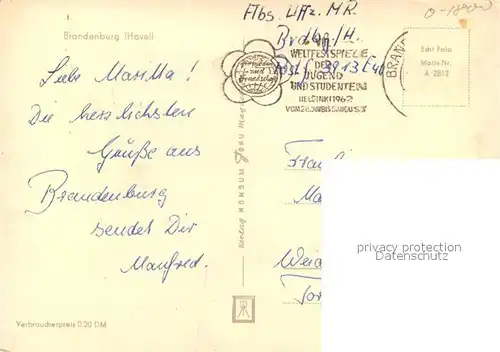 Brandenburg (Havel)
Liebe Marilla!
Die herzlichsten
Grüße aus
Brandenburg
sendet Dir
Manfred.
Verbraucherpreis 0.20 DM
Verlag KONSUM
Abs. Uffz. M.R.
Brdbg./H.
Postf. 3913 E
WELTFESTSPIELE
DER
JUGEND
UND STUDENTEN
HELSINKI 1962
BRAN
Echt Foto
Motiv Nr.
A 2813
Frau
Ma
Weid
privacy protection
Tor